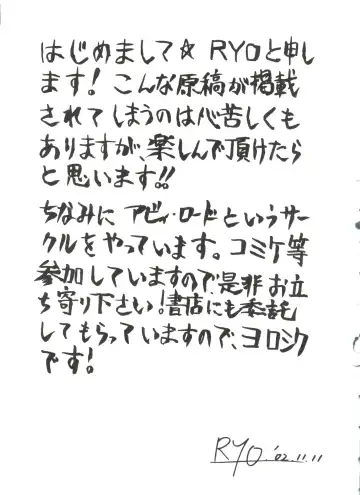 はじめまして☆ RYOと申し
ます! こんな原稿が掲載
されてしまうのは心苦しくも
ありますが、楽しんで頂けたら
と思います!!
ちなみに アビィ・ロードというサー
クルをやっています。コミケ等
参加していますので是非お立
ち寄り下さい!書店にも委託
してもらっていますので、ヨロシク
です!
RYO.'02.11.11